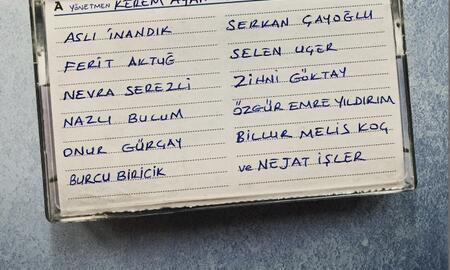 A YÖNETMEN KEREM AYAN
ASLI İNANDIK
FERİT AKTUĞ
NEVRA SEREZLİ
NAZLI BULUM
ONUR GÜRÇAY
BURCU BİRİCİK
SERKAN ÇAYOĞLU
SELEN UÇER
ZİHNİ GÖKTAY
ÖZGÜR EMRE YILDIRIM
BİLLUR MELİS KOÇ
ve NEJAT İŞLER